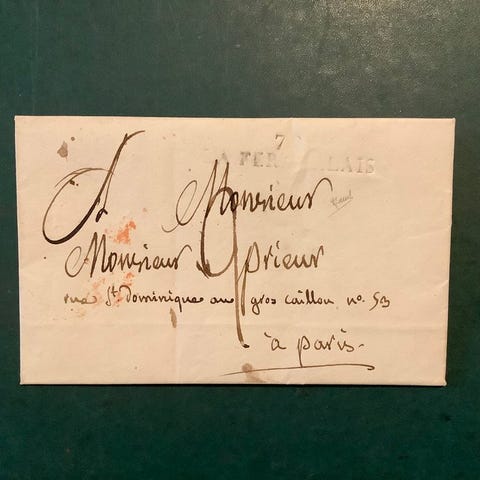 7
FER LAIS
A Monsieur
Monsieur prieur
rue St dominique au gros caillou no. 53
à paris.